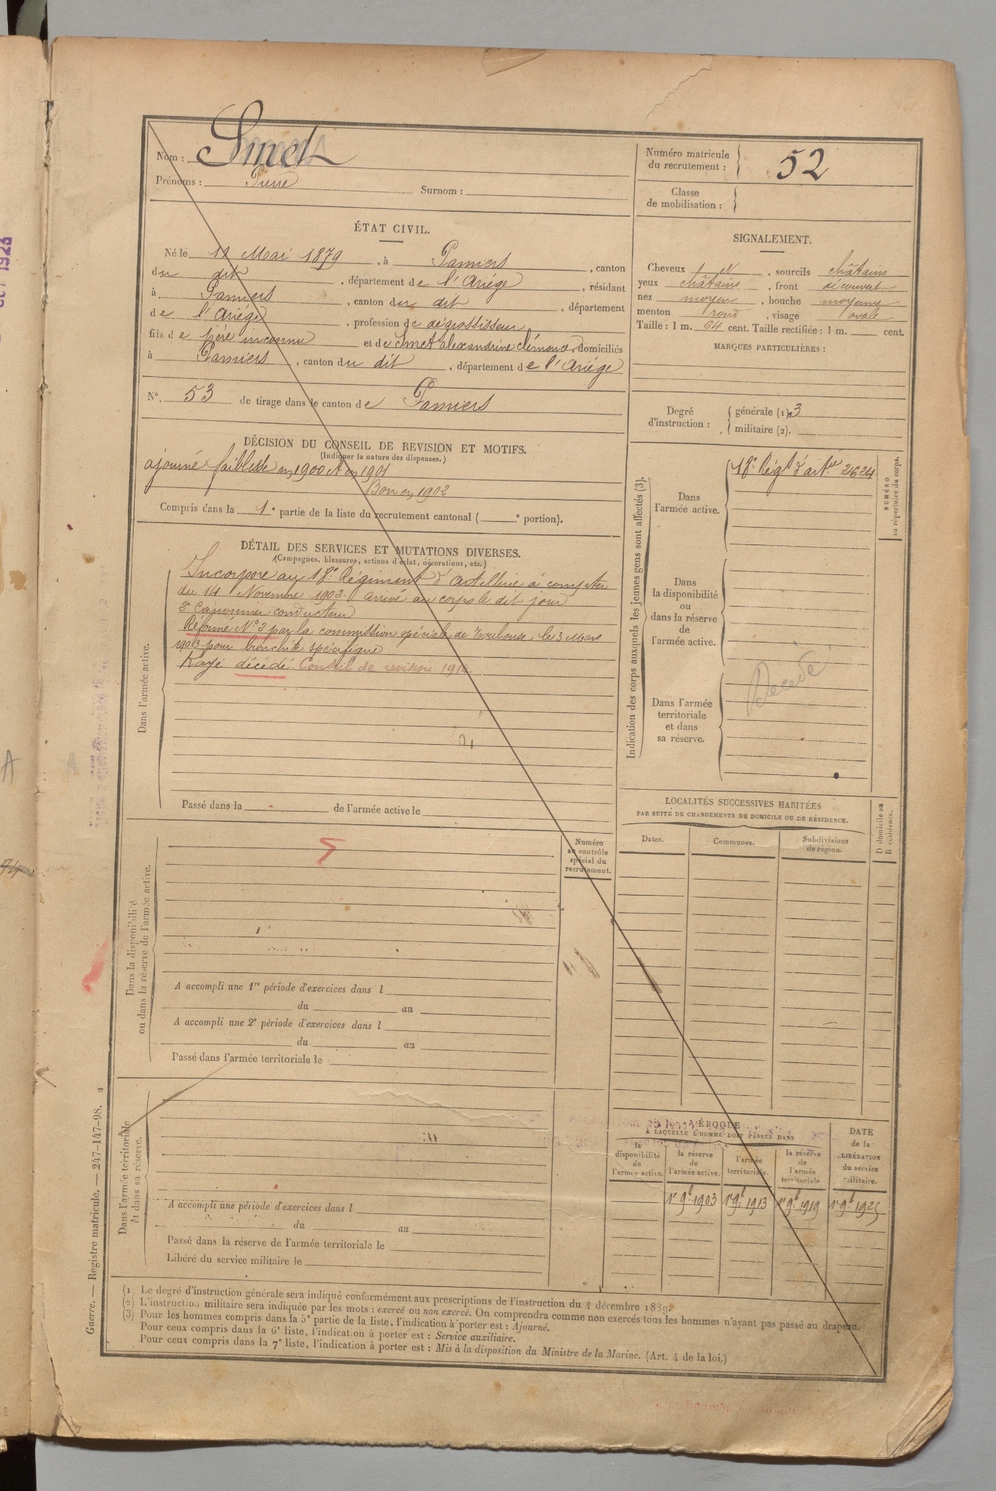 Nom : Smet
Prénoms : Pierre Surnom :
Numéro matricule
du recrutement : 52
Classe
de mobilisation :
ÉTAT CIVIL.
Né le 12 Mai 1879, à Pamiers, canton
du dit, département de l'Ariège, résidant
à Pamiers, canton du dit, département
de l'Ariège, profession de dégrossisseur
fils de père inconnu et de Smet alexandrine clémence, domiciliés
à Pamiers, canton du dit, département de l'Ariège
N° 53 de tirage dans le canton de Pamiers
SIGNALEMENT.
Cheveux et, sourcils châtains
yeux châtains, front découvert
nez moyen, bouche moyenne
menton rond, visage ovale
Taille : 1 m. 64 cent. Taille rectifiée : 1 m. cent.
MARQUES PARTICULIÈRES :
Degré
d'instruction :
générale (1). 3
militaire (2).
DÉCISION DU CONSEIL DE REVISION ET MOTIFS.
(Indiquer la nature des dispenses.)
ajourné faiblesse en 1900 et en 1901
Bon en 1902
Compris dans la 1e partie de la liste du recrutement cantonal ( e portion).
DÉTAIL DES SERVICES ET MUTATIONS DIVERSES.
(Campagnes, blessures, actions d'éclat, décorations, etc.)
Dans l'armée active.
Incorporé au 18e Régiment d'artillerie à compter
du 14 Novembre 1902. arrivé au corps le dit jour
2e Canonnier conducteur
Réformé N° 2 par la commission spéciale de Toulouse le 3 Mars
1903 pour bronchite spécifique
Rayé décédé Conseil de revision
Passé dans la de l'armée active le
Indication des corps auxquels les jeunes gens sont affectés (3).
Dans
l'armée active.
18e Régt d'artie 2624
NUMÉRO
au répertoire du corps.
Dans
la disponibilité
ou
dans la réserve
de
l'armée active.
Dans l'armée
territoriale
et dans
sa réserve.
Décédé
LOCALITÉS SUCCESSIVES HABITÉES
PAR SUITE DE CHANGEMENTS DE DOMICILE OU DE RÉSIDENCE.
Dates.
Communes.
Subdivisions
de région.
D. domicile ou
R. résidence.
Dans la disponibilité
ou dans la réserve de l'armée active.
Numéro
au contrôle
spécial du
recrutement.
A accompli une 1re période d'exercices dans l
du au
A accompli une 2e période d'exercices dans l
du au
Passé dans l'armée territoriale le
Dans l'armée territoriale
et dans sa réserve.
A accompli une période d'exercices dans l
du au
Passé dans la réserve de l'armée territoriale le
Libéré du service militaire le
ÉPOQUE
À LAQUELLE L'HOMME DOIT PASSER DANS
la
disponibilité
de
l'armée active.
la réserve
de
l'armée active.
l'armée
territoriale.
la réserve
de
l'armée
territoriale
DATE
de la
LIBÉRATION
du service
militaire.
1r 9e 1903 1r 9e 1913 1r 9e 1919 1r 9e 1925
(1) Le degré d'instruction générale sera indiqué conformément aux prescriptions de l'instruction du 4 décembre 1889.
(2) L'instruction militaire sera indiquée par les mots : exercé ou non exercé. On comprendra comme non exercés tous les hommes n'ayant pas passé au drapeau.
(3) Pour les hommes compris dans la 5e partie de la liste, l'indication à porter est : Ajourné.
Pour ceux compris dans la 6e liste, l'indication à porter est : Service auxiliaire.
Pour ceux compris dans la 7e liste, l'indication à porter est : Mis à la disposition du Ministre de la Marine. (Art. 4 de la loi.)
Guerre. — Registre matricule. — 247-147-98.